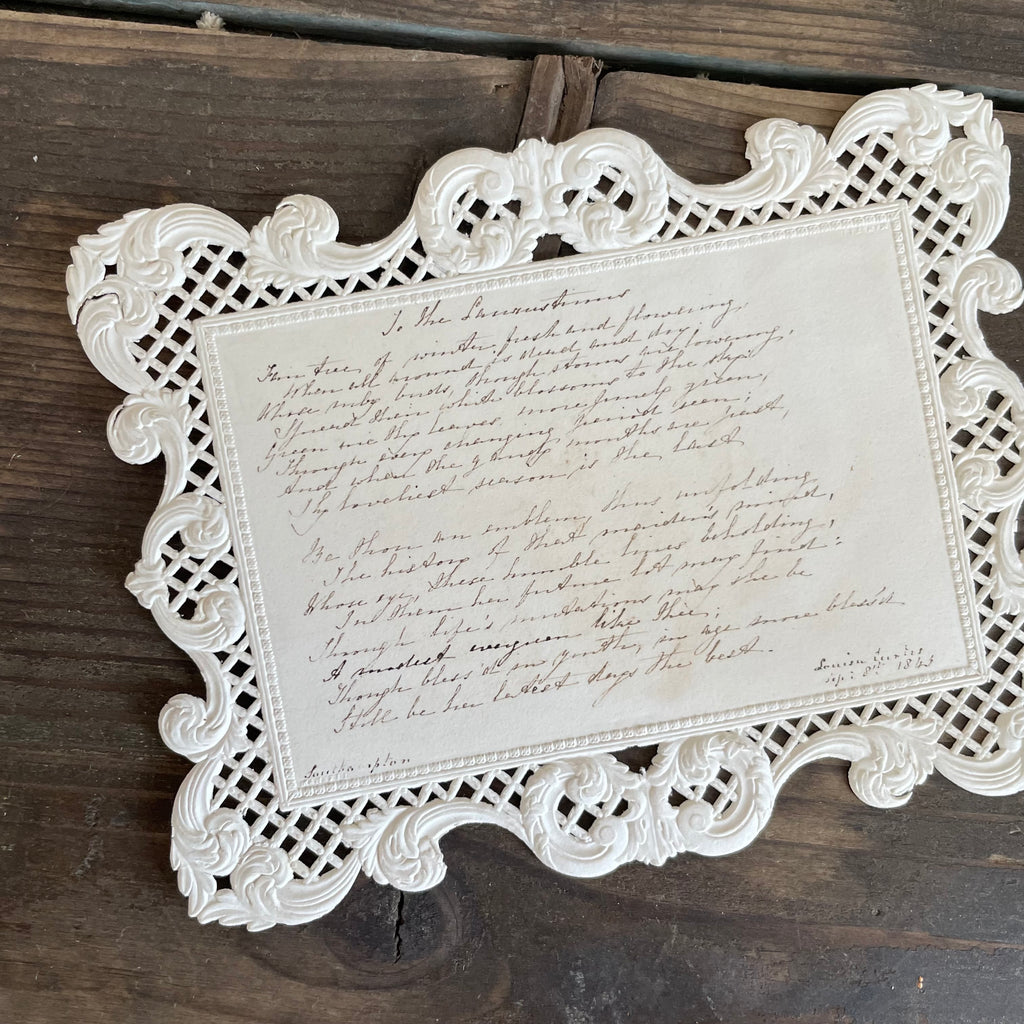 To the Laurustinus
Fair tree of winter, fresh and flowering,
When all around is dead and dry;
Whose ruby buds, though storms are lowering,
Spread their white blossoms to the sky:
Green are thy leaves, more purely green,
Through every changing period seen;
And when the gaudy months are past,
Thy loveliest season is the last
Be thou an emblem, thus unfolding
The history of that maiden's mind,
Whose eye, these humble lines beholding,
In them her future lot may find:
Through life's mutations may she be
A modest evergreen like thee;
Though bless'd in youth, in age more bless'd
Still be her latest days the best.
Louisa
Sept 8th 1845
Southampton